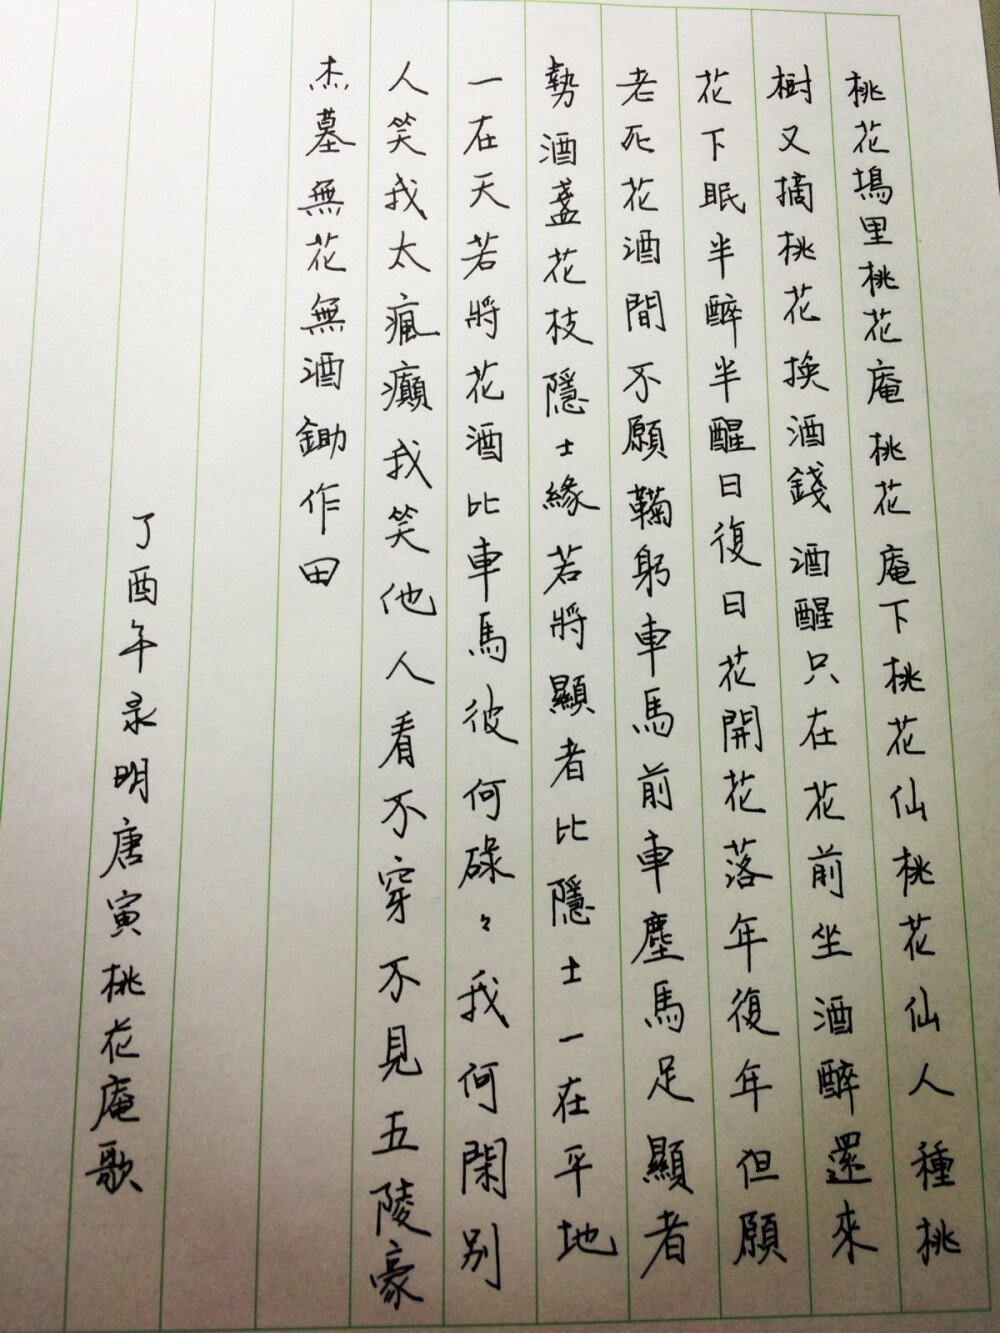 桃花塢里桃花庵桃花庵下桃花仙桃花仙人種桃
樹又摘桃花換酒錢酒醒只在花前坐酒醉還來
花下眠半醉半醒日復日花開花落年復年但願
老死花酒間不願鞠躬車馬前車塵馬足顯者
勢酒盞花枝隱士緣若將顯者比隱士一在平地
一在天若將花酒比車馬彼何碌々我何閑別
人笑我太瘋癲我笑他人看不穿不見五陵豪
杰墓無花無酒鋤作田
丁酉年录明唐寅桃花庵歌